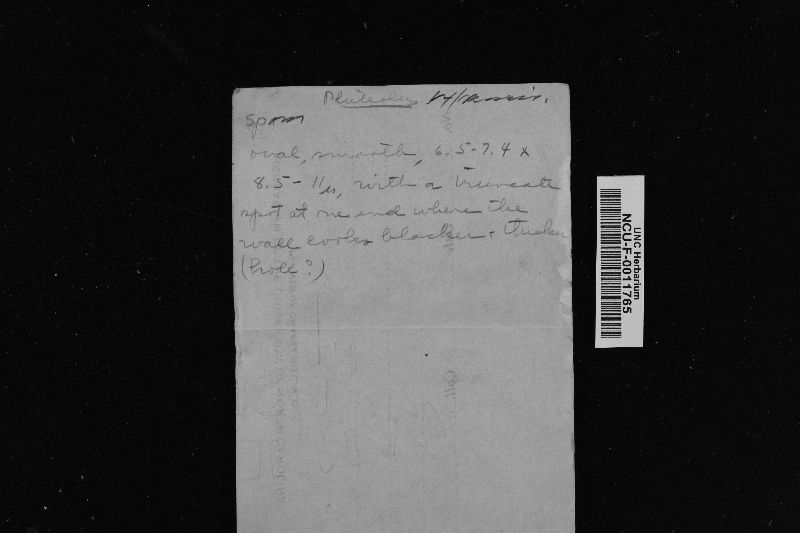 Pluteolus
Spores
oval, smooth, 6.5-7.4 x
8.5 - 11µ, with a truncate
spot at one end where the
wall looks blacker & thicker
(hole?)
Coll.
UNC Herbarium
NCU-F-0011765